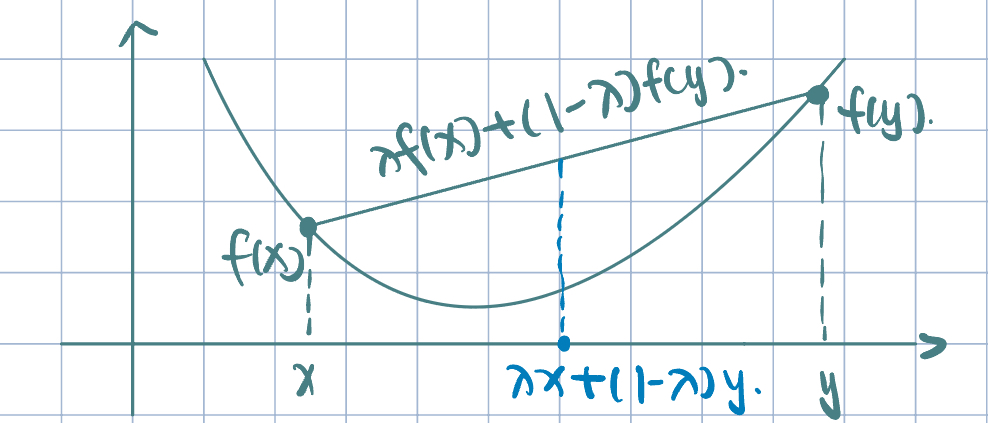 λf(x)+(1-λ)f(y).
f(y).
f(x)
x
λx+(1-λ)y.
y